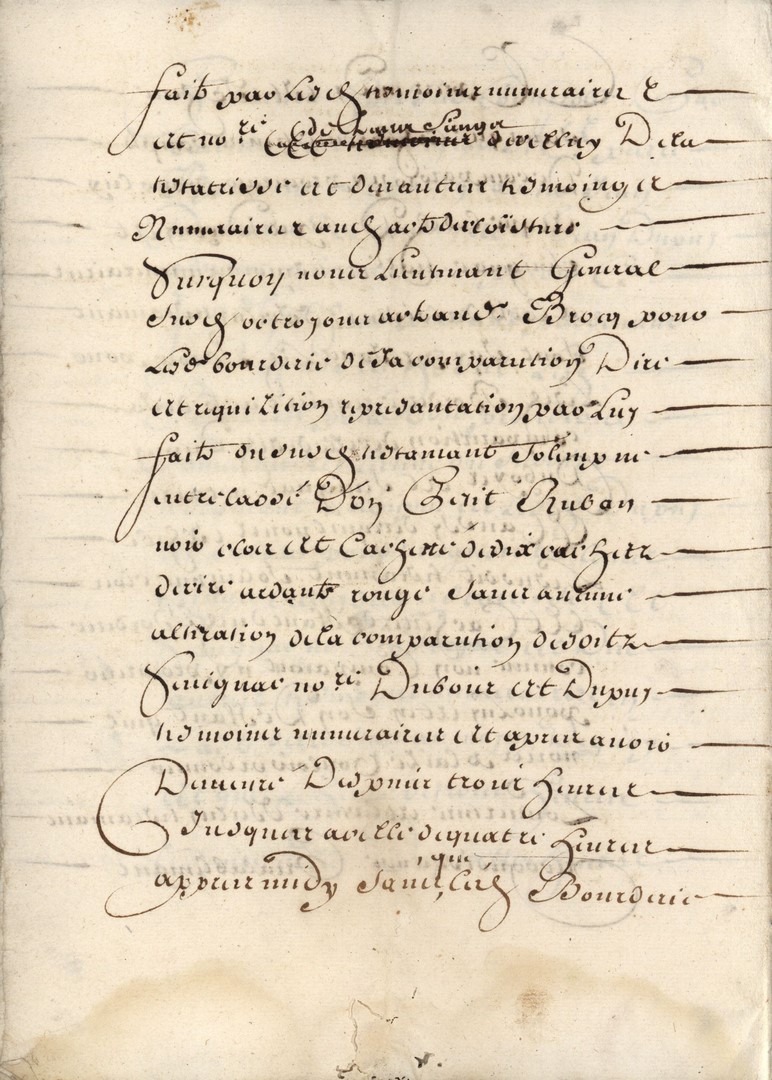 faits par lesd tesmoins numeraires &
et no.re de leurs seings de celluy De la
testatrisse et des autres tesmoings et
Numeraires aud acte de closture
Surquoy nous Lieutenant General
susd octroyons acte aud. Brocq pour
Led bourderie de sa comparution Dire
et requizition represantation par Luy
faite du susd testamant Solempne
entrelassé D'un Petit Ruban
noir clos et Cacheté de dix cachetz
de cire ardante rouge Sans aucune
altération de la comparution desditz
Senignac no.re Dubois et Dupuy
tesmoins numeraires et apres avoir
Demeuré Despuis trois heures
Jusques a celle de quatre heures
appres midy Sans que led Bourderie